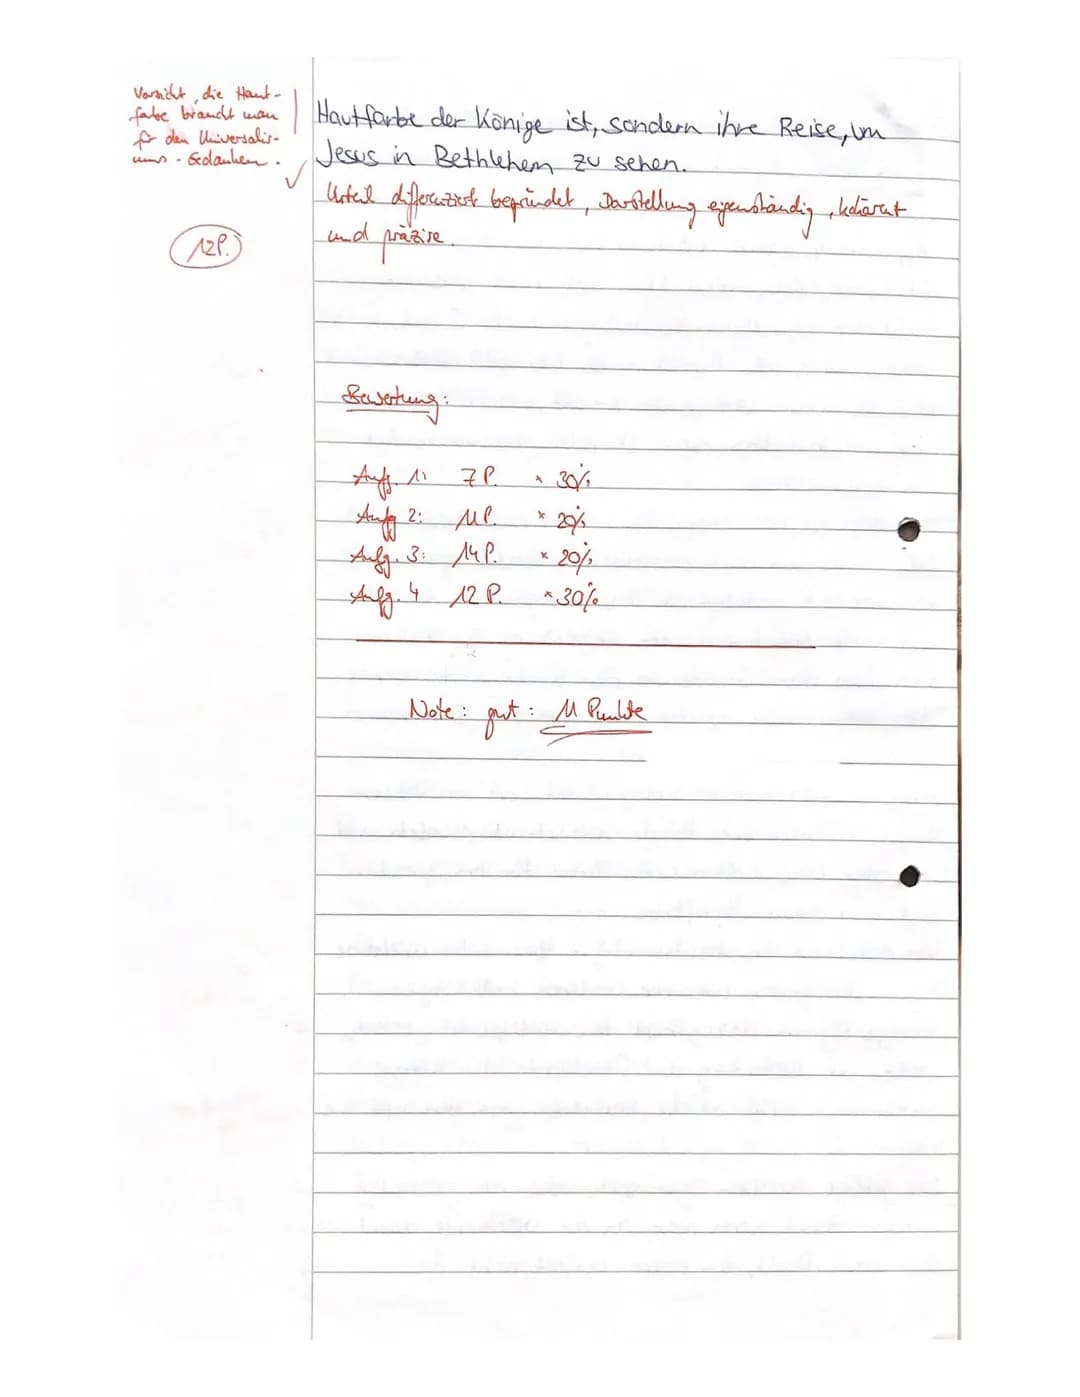 Vorsicht, die Haut-
farbe braucht man
für den Universalis-
mus-Gedanken.
Hautfarbe der Könige ist, sondern ihre Reise, um
Jesus in Bethlehem zu sehen.
Urteil differenziert begründet, Darstellung eigenständig, kohärent
und präzise.
12P.
Bewertung:
Aufg. 1: 7 P. × 30%
Aufg 2: 11 P. × 20%
Aufg. 3: 14 P. × 20%
Aufg. 4 12 P. × 30%
Note: gut: 11 Punkte